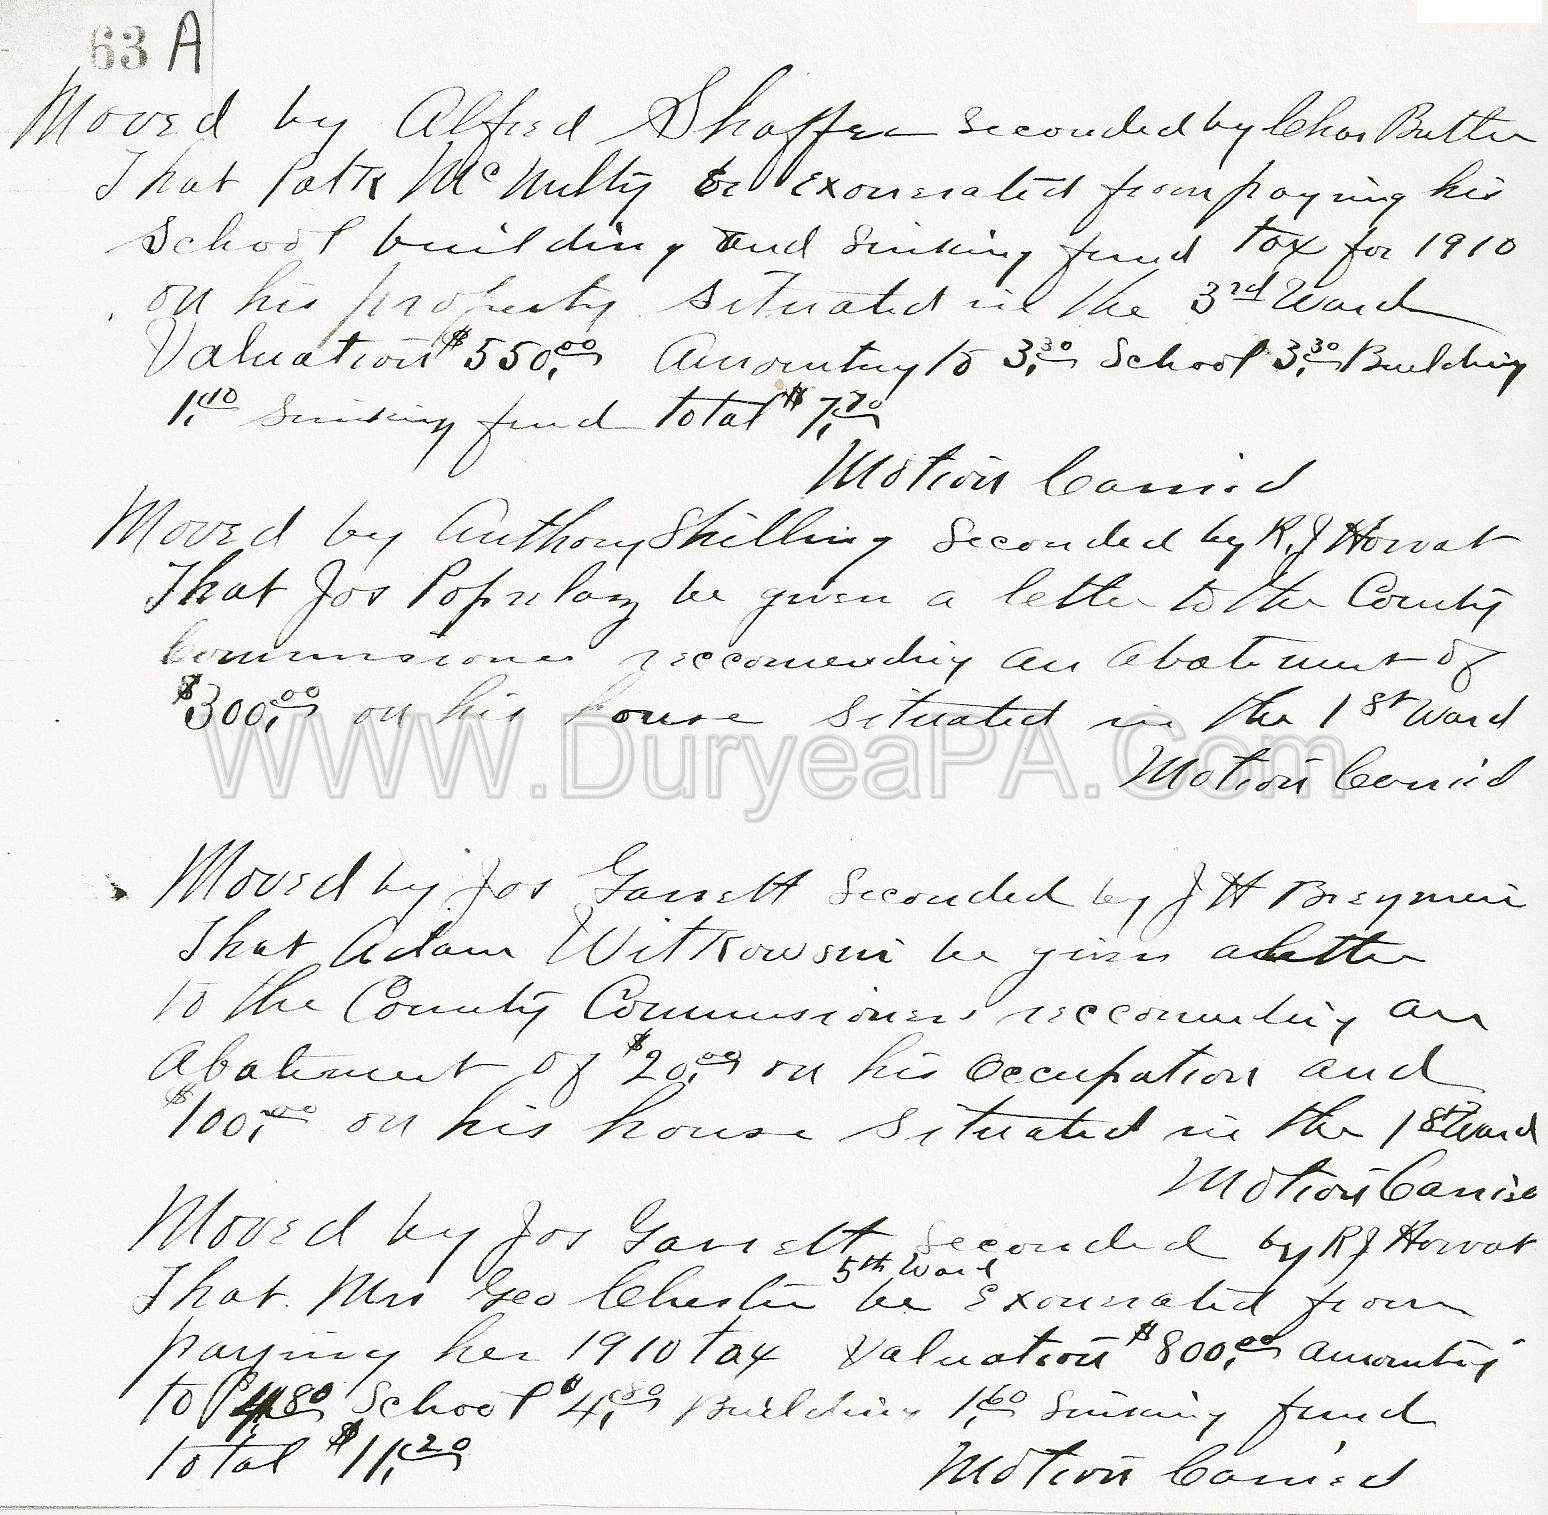 63 A
Moved by Alfred Shaffer seconded by Chas Butler
That Patk McNulty be exonerated from paying his
School building and Sinking fund tax for 1910
on his property situated in the 3rd Ward
Valuation $550,00 Amounting to 3,30 School 3,30 Building
1,10 Sinking fund total $7,70
Motion Carried
Moved by Anthony Shilling Seconded by R. J Howat
That Jos be given a letter to the County
Commissioner reccomending an abatement of
$300,00 on his house situated in the 1st Ward
WWW.DuryeaPA.Com
Motion Carried
Moved by Jos Garrett Seconded by J H
That Adam Witkowski be given a letter
to the County Commissioners reccomending an
Abatement of $20,00 on his Occupation and
$100,00 on his house situated in the 1st Ward
Motion Carried
Moved by Jos Garrett Seconded by R J Howat
5th Ward
That Mrs Geo Chester be Exonerated from
paying her 1910 tax Valuation $800,00 amounting
to $4,80 School $4,80 Building 1,60 Sinking fund
total $11,20
Motion Carried